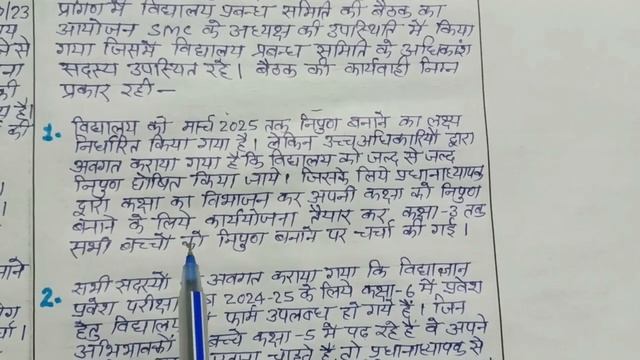 प्रांगण में विद्यालय प्रबन्ध समिति की बैठक का
आयोजन SMC के अध्यक्ष की उपस्थिति में किया
गया जिसमें विद्यालय प्रबन्ध समिति के अधिकांश
सदस्य उपस्थित रहे। बैठक की कार्यवाही निम्न
प्रकार रही —
1. विद्यालय को मार्च 2025 तक निपुण बनाने का लक्ष्य
निर्धारित किया गया है। लेकिन उच्च अधिकारियों द्वारा
अवगत कराया गया है कि विद्यालय को जल्द से जल्द
निपुण घोषित किया जाये। जिसके लिये प्रधानाध्यापक
द्वारा कक्षा का विभाजन कर अपनी कक्षा को निपुण
बनाने के लिये कार्ययोजना तैयार कर कक्षा-3 तक
सभी बच्चों को निपुण बनाने पर चर्चा की गई।
2. सभी सदस्यों अवगत कराया गया कि विद्याज्ञान
प्रवेश परीक्षा 2024-25 के लिये कक्षा-6 में प्रवेश
हेतु विद्यालय फार्म उपलब्ध हो गये हैं। जिन
अभिभावकों बच्चे कक्षा-5 में पढ रहे हैं वे अपने
चाहते हैं तो प्रधानाध्यापक से